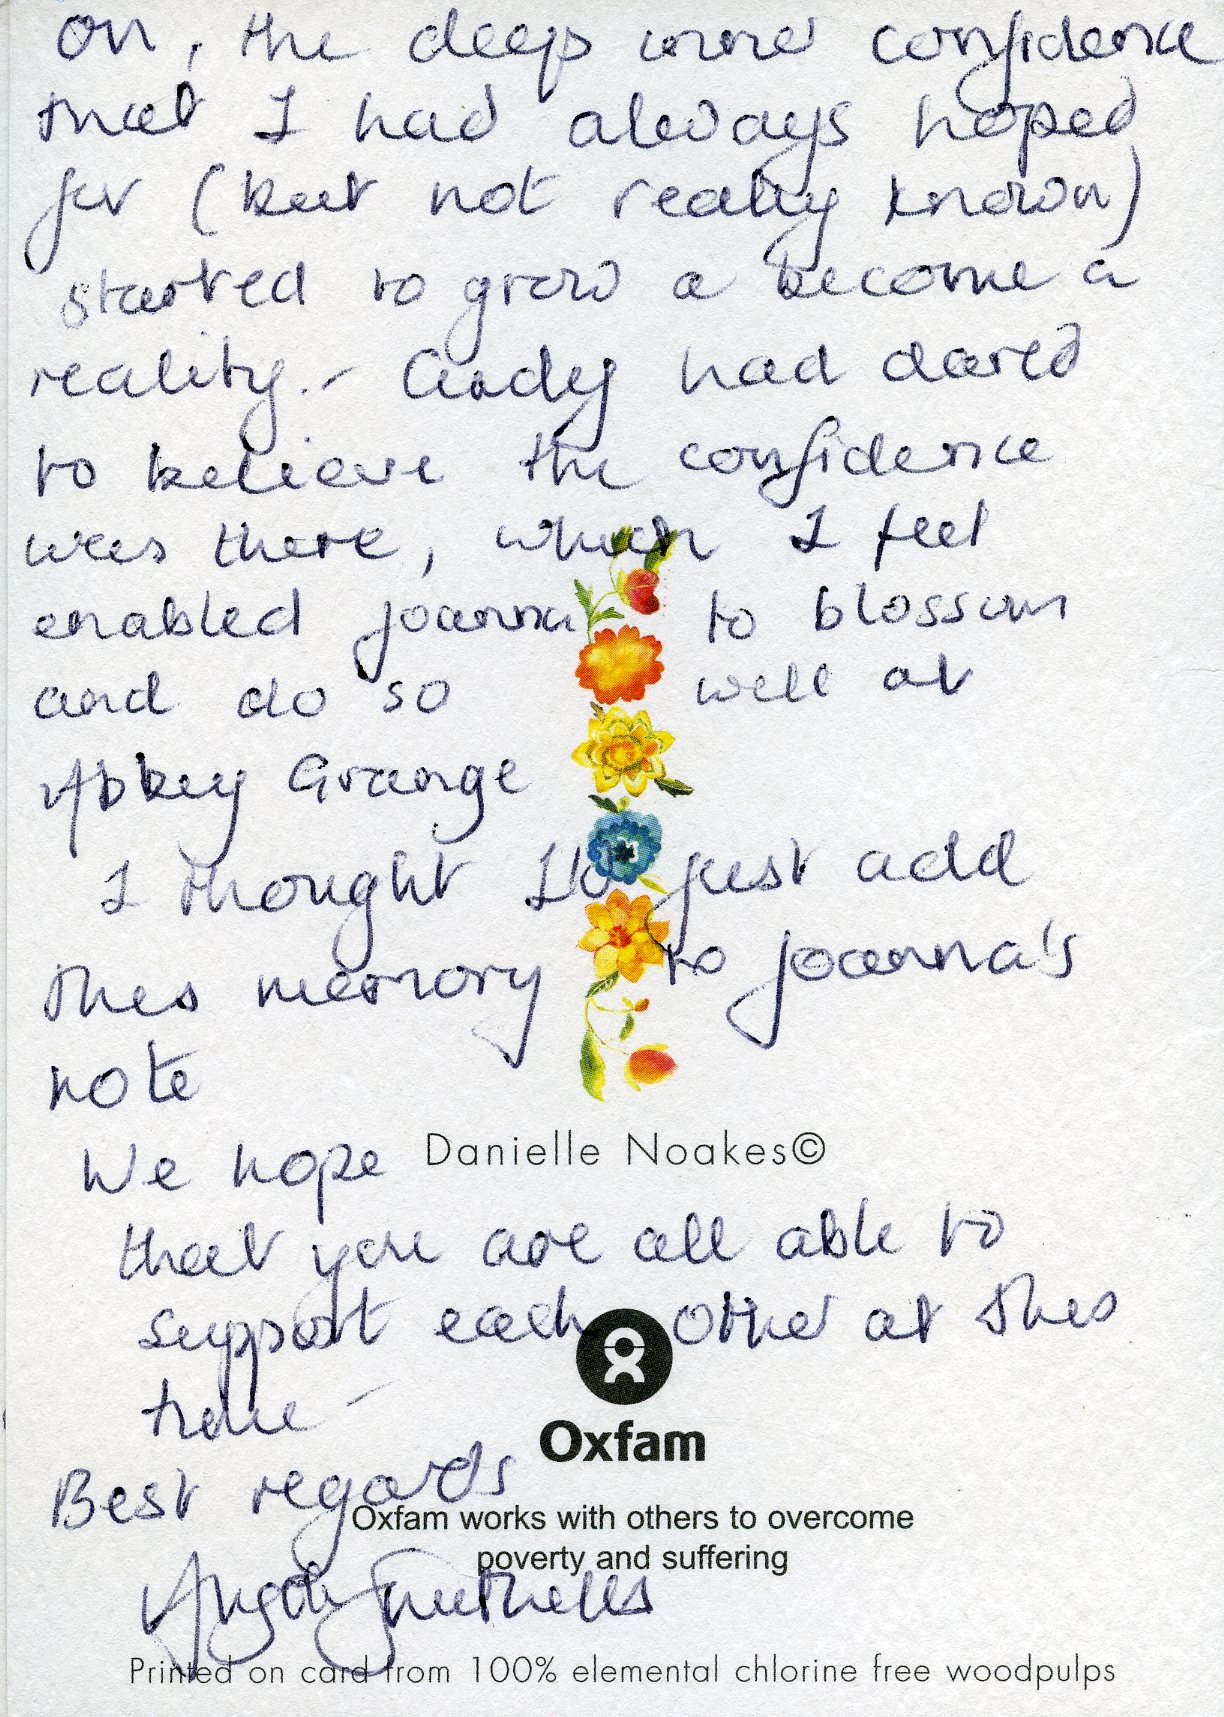 on, the deep inner confidence
that I had always hoped
for (but not really known)
started to grow a become a
reality. - Andy had dared
to believe the confidence
was there, which I feel
enabled Joanna to blossom
and do so well at
Abbey Grange
I thought I'd just add
this memory to Joanna's
note
We hope
Danielle Noakes©
that you are all able to
support each other at this
time -
Oxfam
Best regards
Oxfam works with others to overcome
poverty and suffering
Angela
Printed on card from 100% elemental chlorine free woodpulps